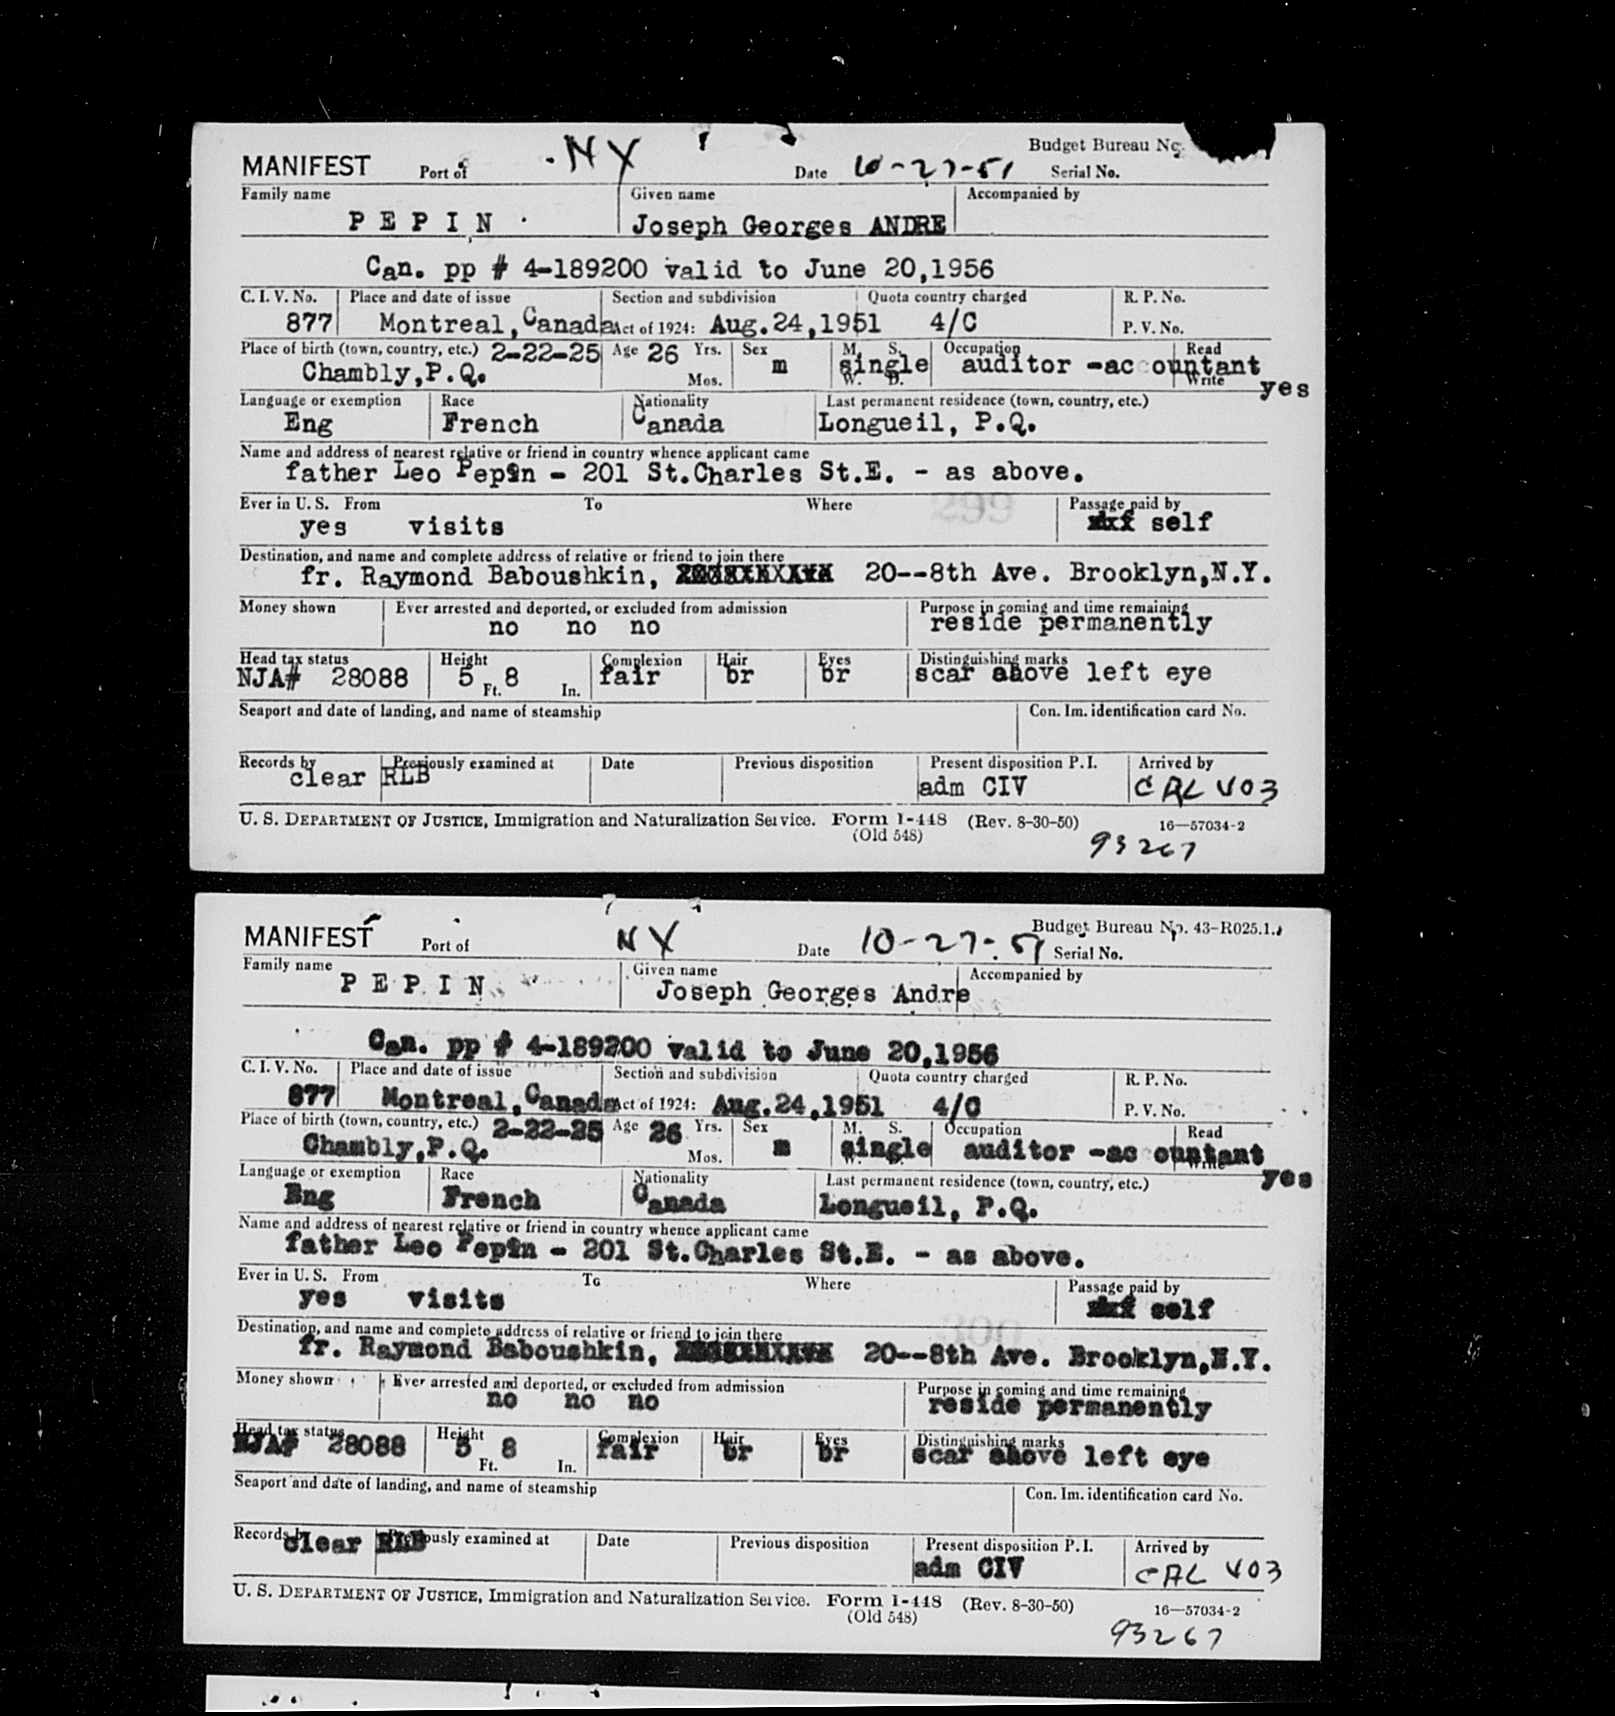 Budget Bureau No.
MANIFEST Port of NY Date 10-27-51 Serial No.
Family name Given name Accompanied by
PEPIN Joseph Georges ANDRE
Can. pp # 4-189200 valid to June 20,1956
C. I. V. No. Place and date of issue Section and subdivision Quota country charged R. P. No.
877 Montreal, Canada Act of 1924: Aug.24,1951 4/C P. V. No.
Place of birth (town, country, etc.) 2-22-25 Age 26 Yrs. Sex M. S. Occupation Read
Chambly,P.Q. Mos. m single W. D. auditor -ac countant Write yes
Language or exemption Race Nationality Last permanent residence (town, country, etc.)
Eng French Canada Longueil, P.Q.
Name and address of nearest relative or friend in country whence applicant came
father Leo Pepin - 201 St.Charles St.E. - as above.
Ever in U. S. From To Where 299 Passage paid by
yes visits self
Destination, and name and complete address of relative or friend to join there
fr. Raymond Baboushkin, 20--8th Ave. Brooklyn,N.Y.
Money shown Ever arrested and deported, or excluded from admission Purpose in coming and time remaining
no no no reside permanently
Head tax status Height Complexion Hair Eyes Distinguishing marks
NJA# 28088 5 Ft. 8 In. fair br br scar above left eye
Seaport and date of landing, and name of steamship Con. Im. identification card No.
Records by Previously examined at Date Previous disposition Present disposition P. I. Arrived by
clear RLB adm CIV CAL 403
U. S. DEPARTMENT OF JUSTICE, Immigration and Naturalization Service. Form I-448 (Rev. 8-30-50) 16—57034-2
(Old 548) 93267
Budget Bureau No. 43-R025.1.
MANIFEST Port of NY Date 10-27-51 Serial No.
Family name Given name Accompanied by
PEPIN Joseph Georges Andre
Can. pp # 4-189200 valid to June 20,1956
C. I. V. No. Place and date of issue Section and subdivision Quota country charged R. P. No.
877 Montreal, Canada Act of 1924: Aug.24,1951 4/C P. V. No.
Place of birth (town, country, etc.) 2-22-25 Age 26 Yrs. Sex M. S. Occupation Read
Chambly,P.Q. Mos. m single W. D. auditor -ac countant Write yes
Language or exemption Race Nationality Last permanent residence (town, country, etc.)
Eng French Canada Longueil, P.Q.
Name and address of nearest relative or friend in country whence applicant came
father Leo Pepin - 201 St.Charles St.E. - as above.
Ever in U. S. From To Where Passage paid by
yes visits self
Destination, and name and complete address of relative or friend to join there 300
fr. Raymond Baboushkin, 20--8th Ave. Brooklyn,N.Y.
Money shown Ever arrested and deported, or excluded from admission Purpose in coming and time remaining
no no no reside permanently
Head tax status Height Complexion Hair Eyes Distinguishing marks
NJA# 28088 5 Ft. 8 In. fair br br scar above left eye
Seaport and date of landing, and name of steamship Con. Im. identification card No.
Records by Previously examined at Date Previous disposition Present disposition P. I. Arrived by
clear RLB adm CIV CAL 403
U. S. DEPARTMENT OF JUSTICE, Immigration and Naturalization Service. Form I-448 (Rev. 8-30-50) 16—57034-2
(Old 548) 93267